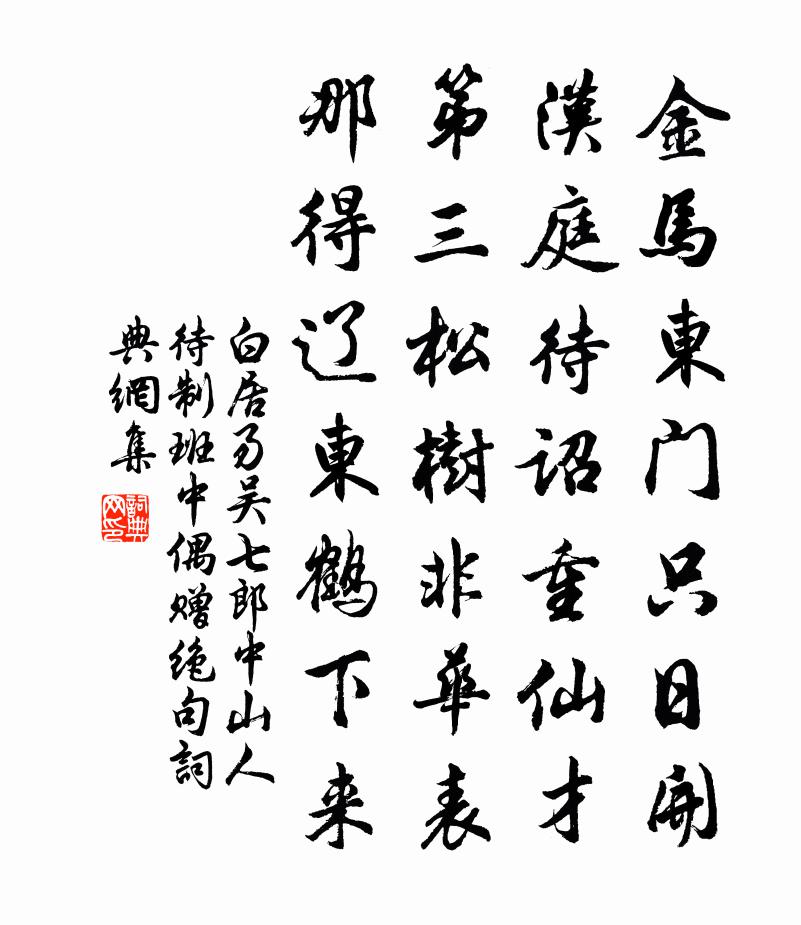 金馬東门只日開
漢庭待诏重仙才
第三松樹非華表
那得辽東鶴下来
白居易吴七郎中山人
待制班中偶赠绝句詞
典網集
詞典
网印